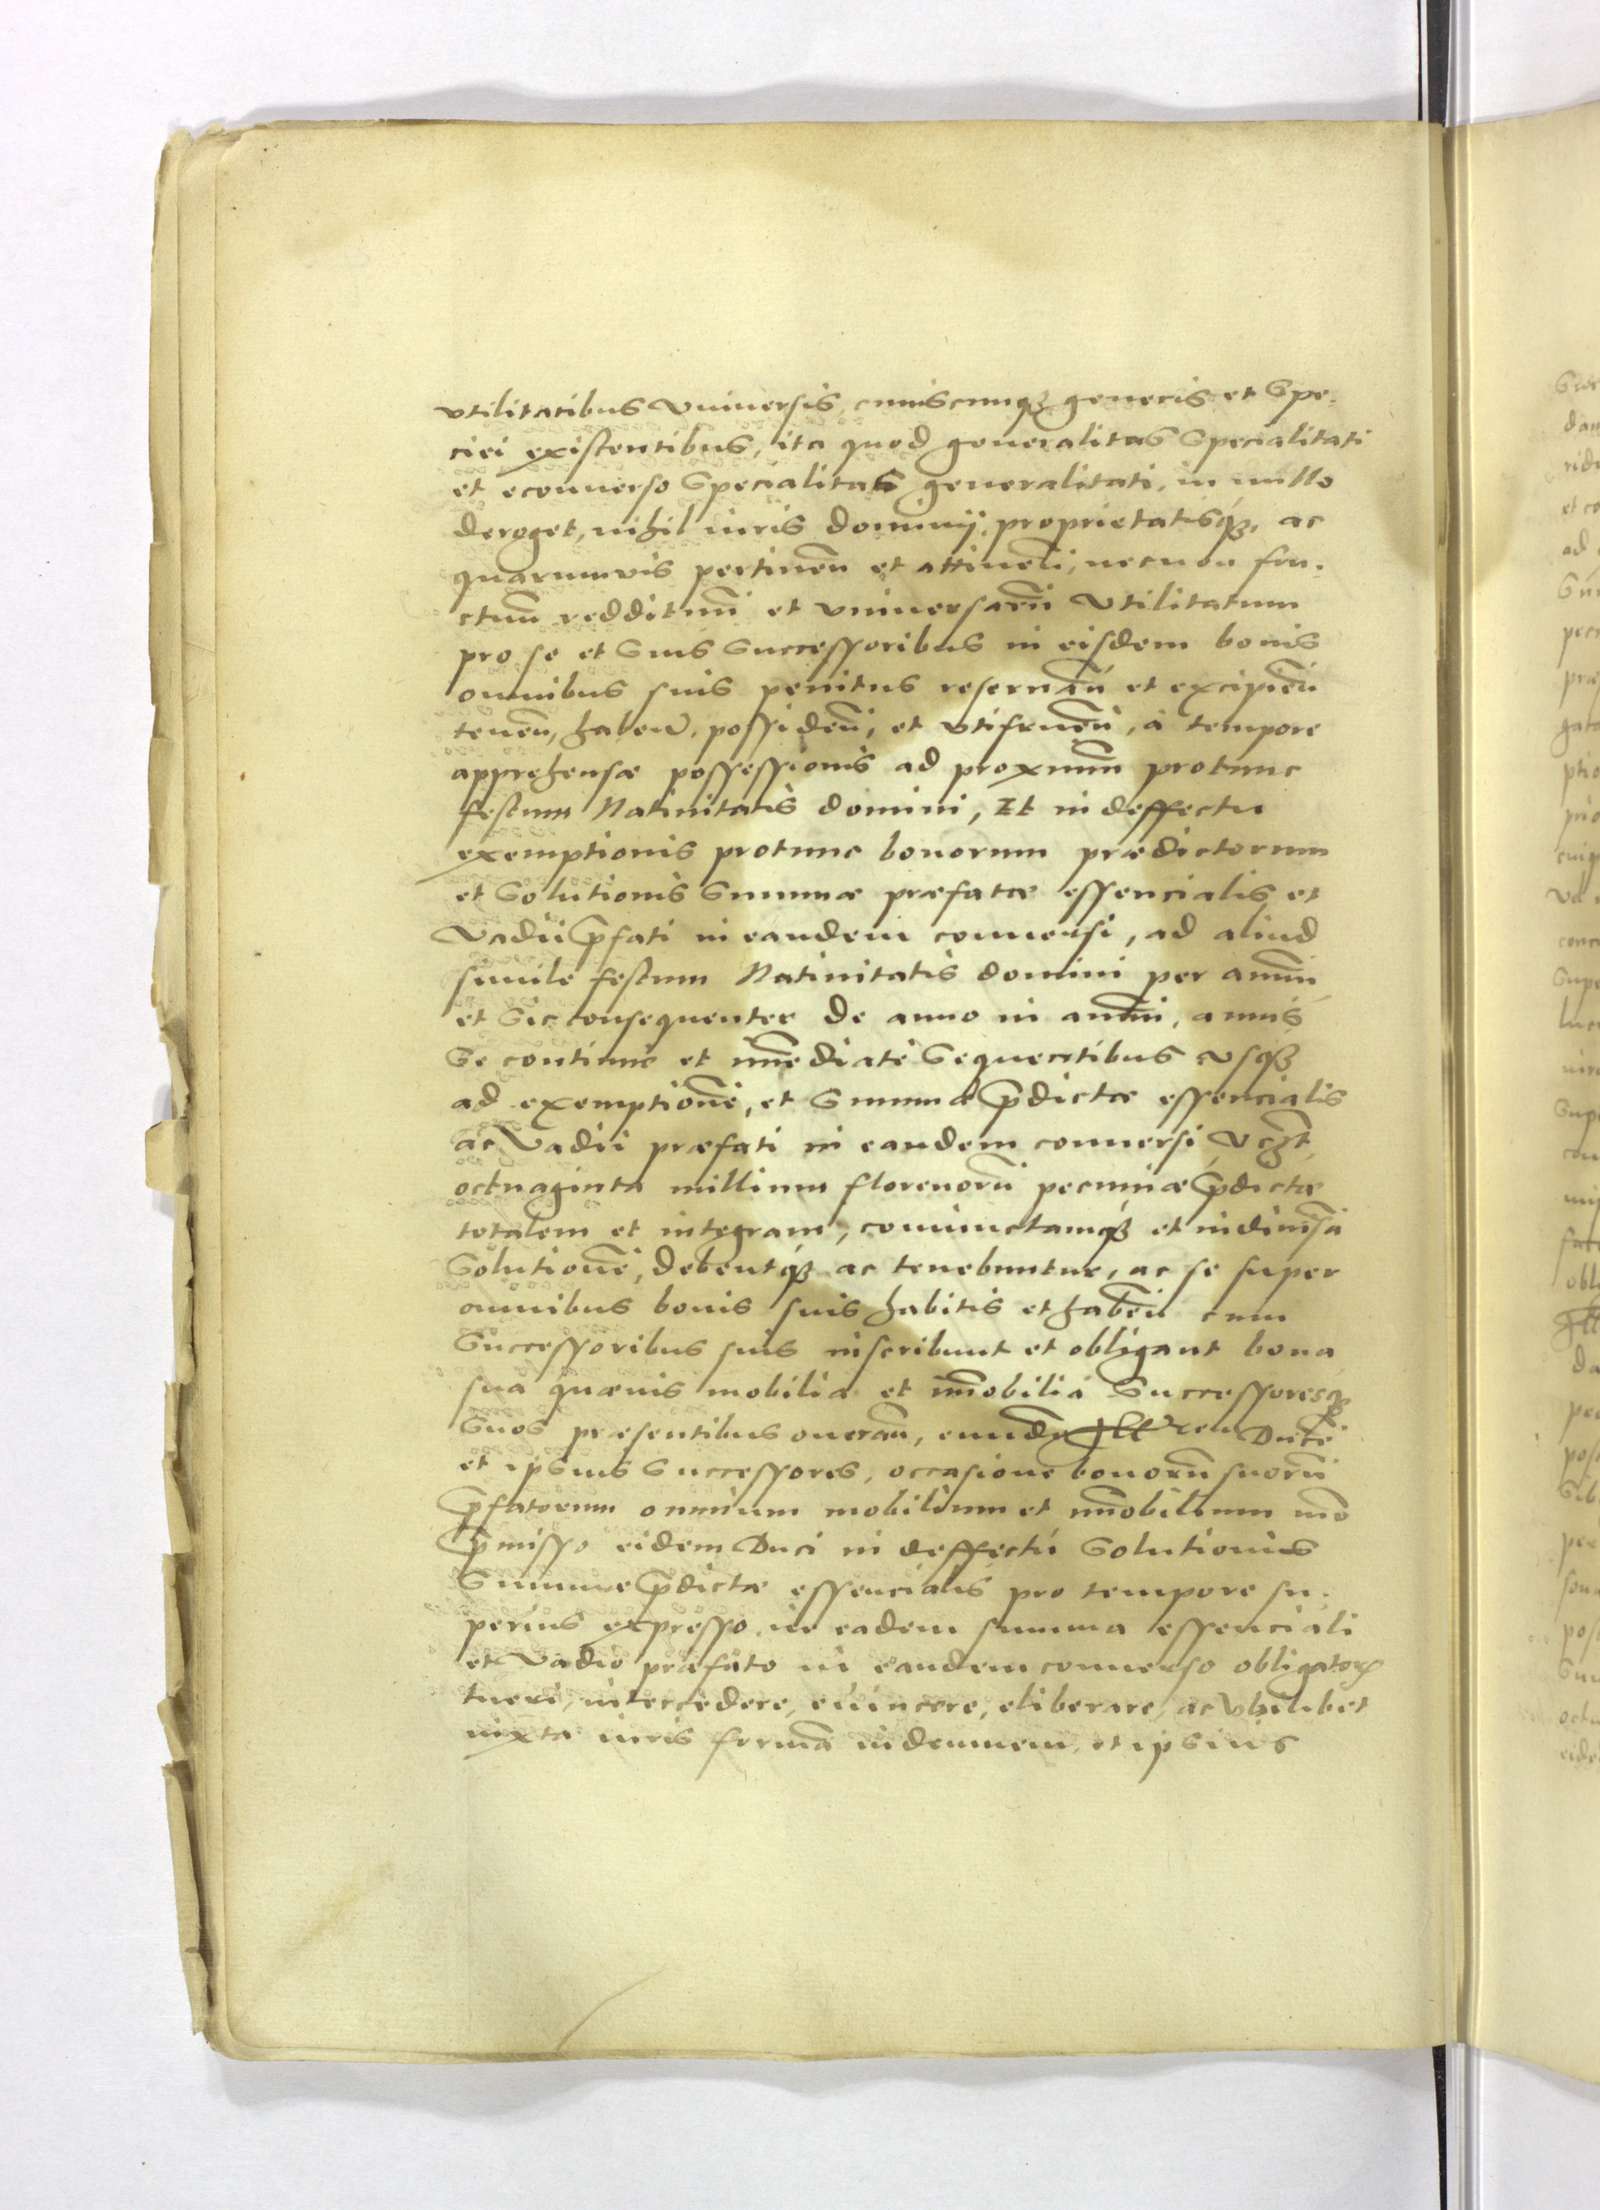 vtilitatibus Vniuersis, cuiuscunq₃ generis et Spe:
ciei existentibus, ita quod generalitas Specialitati
et econuerso Specialitas generalitati, in nullo
deroget, nihil iuris dominij, proprietatisq₃, ac
quarumuis pertineñ et attineñ, necnon fru:
ctuū reddituū et vniuersarū Vtilitatum
pro se et Suis Successoribus in eisdem bonis
omnibus suis penitus reseruañ et excipieñ
teneñ, habeñ, possideñ, et vtifrueñ, à tempore
apprehensæ possessionis ad proximū protunc
festum Natiuitatis domini, Et in deffectu
exemptionis protunc bonorum prædictorum
et Solutionis Summæ præfatæ essencialis et
Vadii p̄fati in eandem conuersi, ad aliud
simile festum Natiuitatis domini per annū
et Sic consequenter de anno in annū, annis
Se continuè et īmediatè Sequentibus vsq₃
ad exemptionē, et Summæ p̄dictæ essencialis
ac Vadii præfati in eandem conuersi, vz̄t
octuaginta millium florenorū pecuniæ p̄dictæ
totalem et integram, coniunctamq₃ et indiuisā
Solutionē, debentq₃ ac tenebuntur, ac se super
omnibus bonis suis habitis et habeñ cum
Successoribus suis inscribunt et obligant bona
sua quæuis mobilia et īmobilia Successoresq₃
Suos præsentibus onerañ, eund̄ Ducē
et ipsius Successores, occasione bonorū suorū
p̄fatorum omnium mobilium et īmobilium mō
p̄misso eidem Duci in deffectu Solutionis
Summæ p̄dictæ essencialis pro tempore su:
perius expresso, in eadem summa essenciali
et Vadio præfato in eandem conuerso obligatorꝫ
tueri, intercedere, euincere, eliberare, ac vbilibet
iuxta iuris formā indemnem, et ipsius